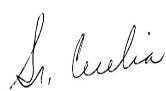 Sr. Cecilia